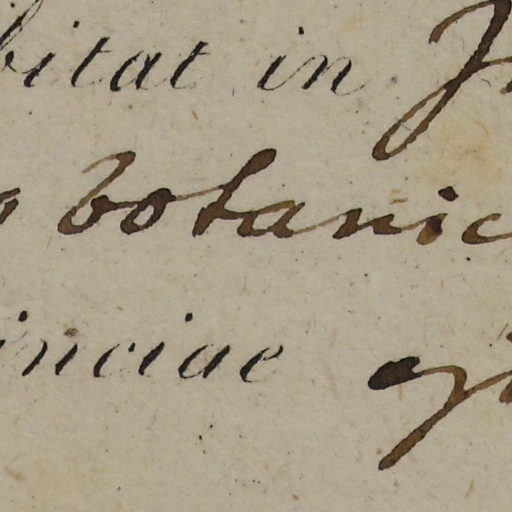 bitat in
botanic
inciae